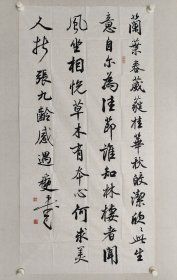 蘭葉春葳蕤桂華秋皎潔欣欣此生
意自尔為佳節誰知林棲者聞
風坐相悦草木有本心何求美
人折 張九齡感遇